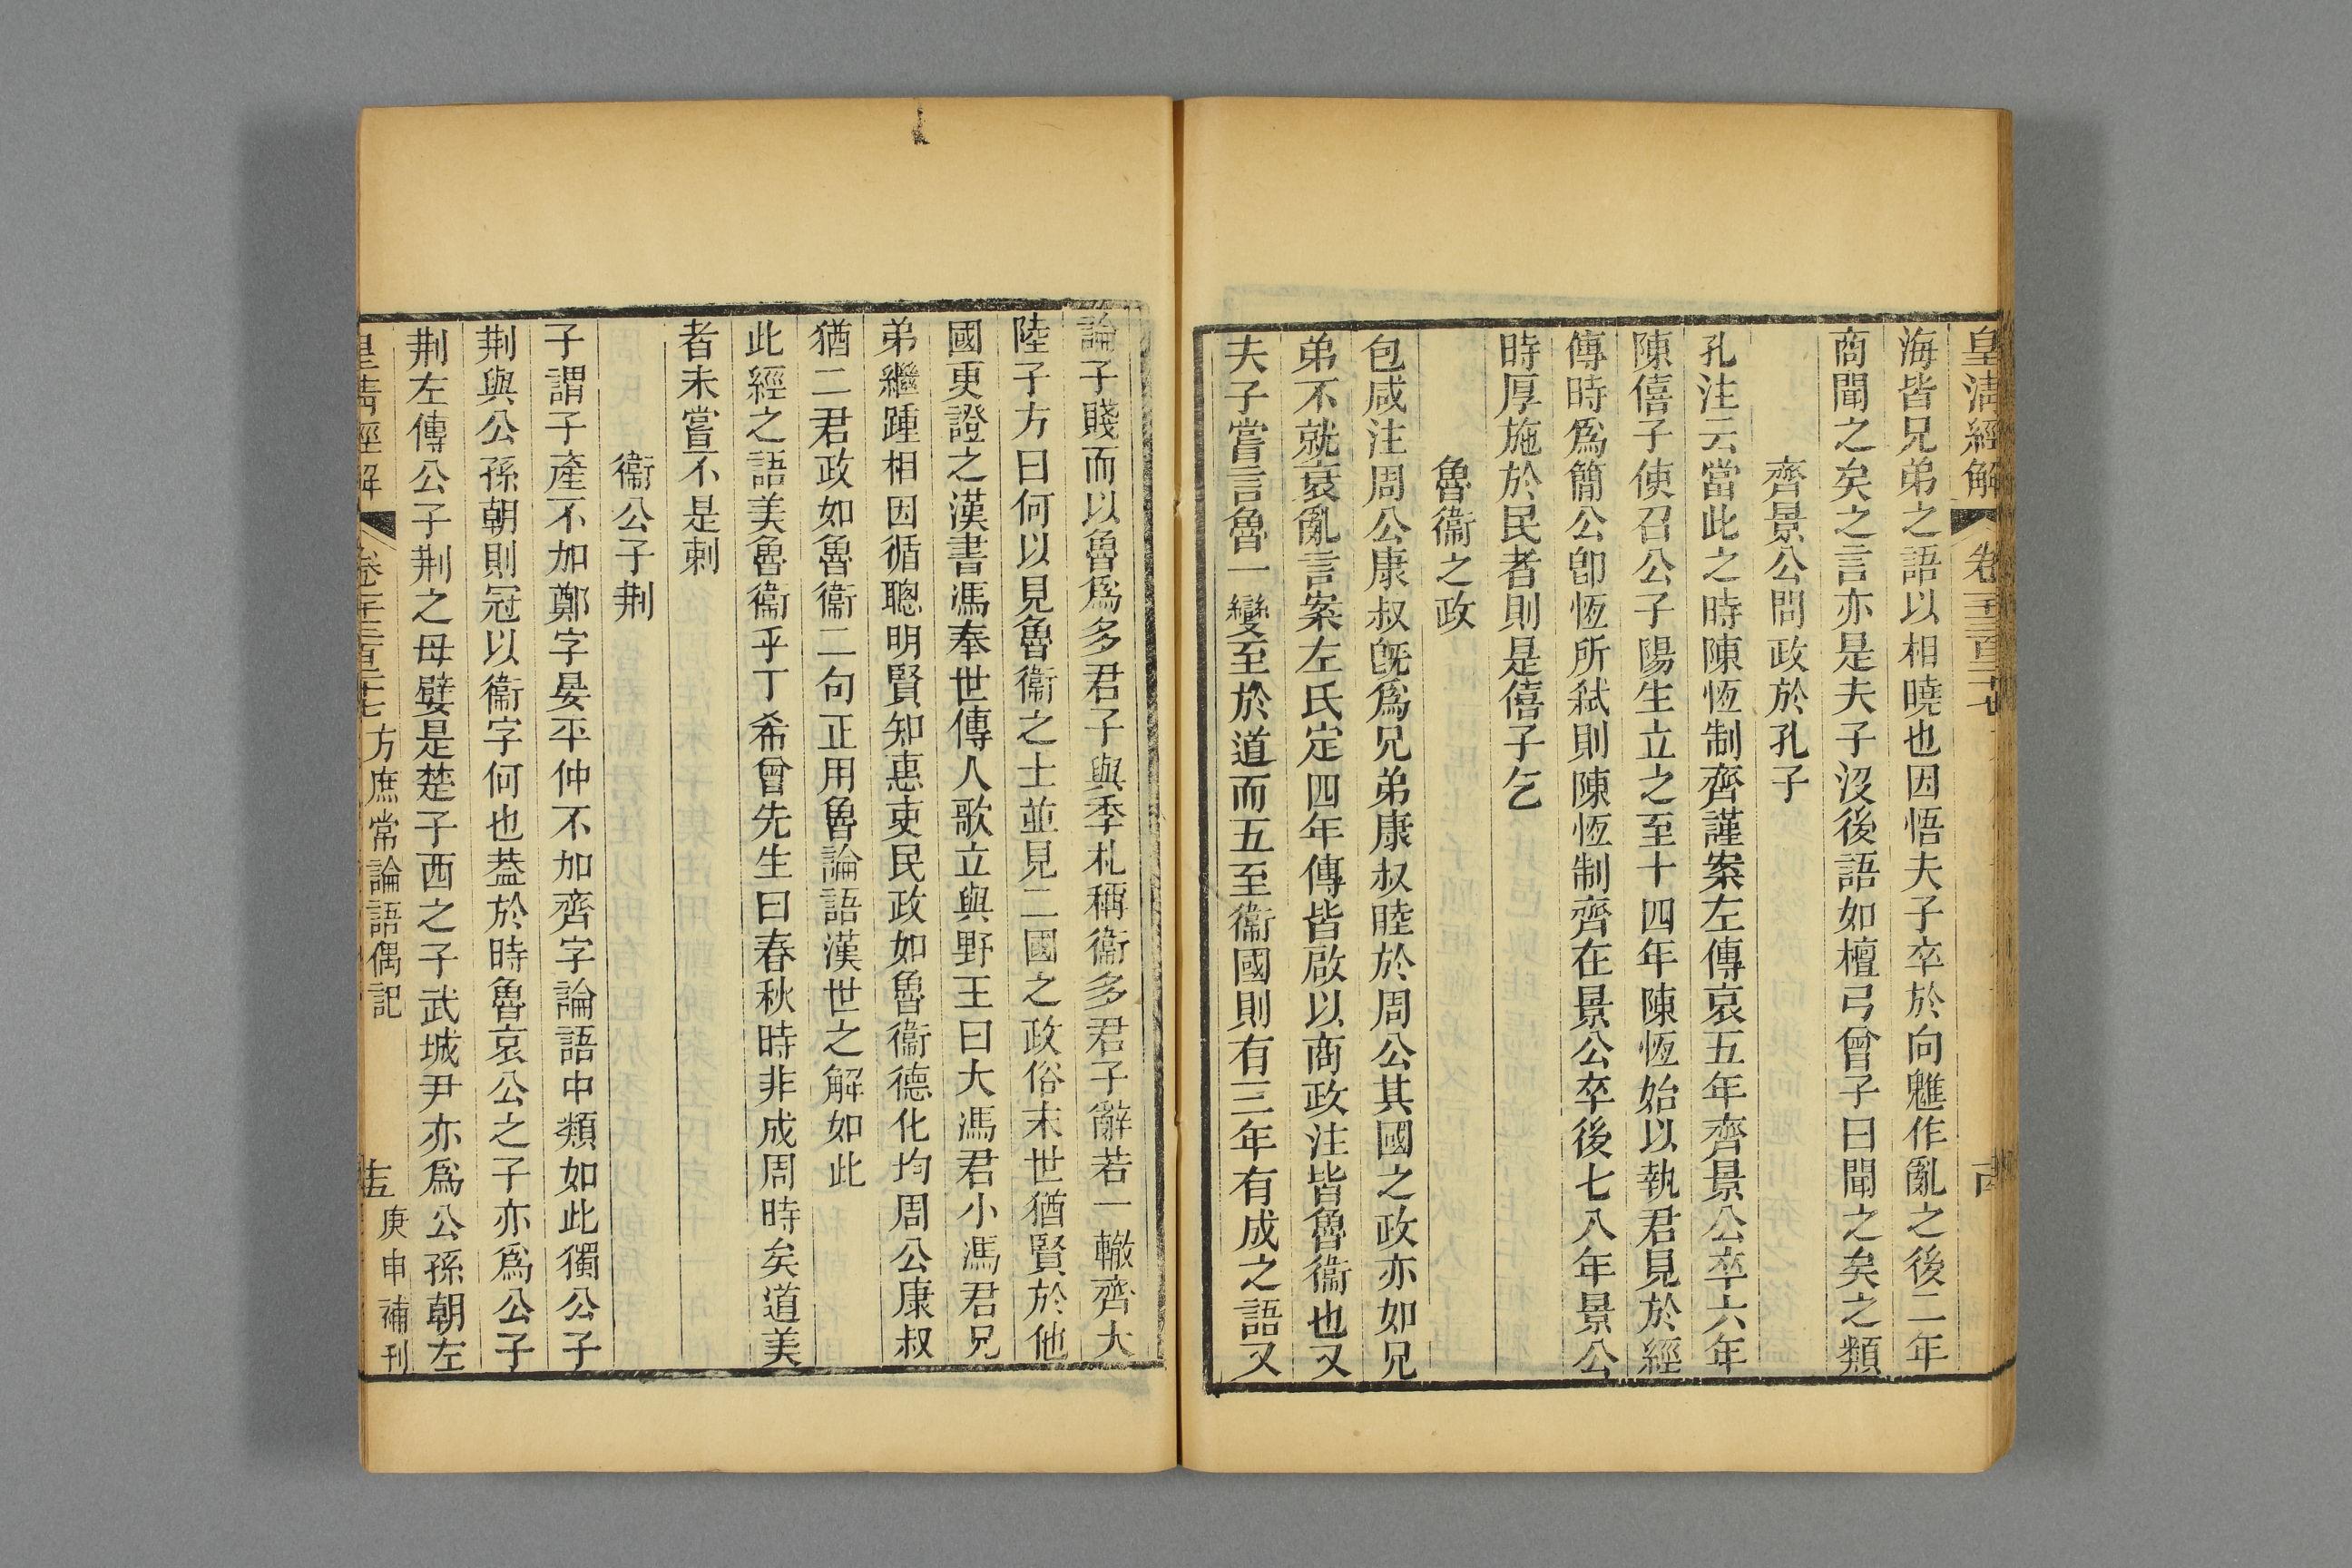 皇清經解 卷一千三百二十七
海皆兄弟之語以相曉也因悟夫子卒於向魋作亂之後二年
商聞之矣之言亦是夫子沒後語如檀弓曾子曰聞之矣之類
齊景公問政於孔子
孔注云當此之時陳恆制齊謹案左傳哀五年齊景公卒六年
陳僖子使召公子陽生立之至十四年陳恆始以執君見於經
傳時爲簡公卽恆所弑則陳恆制齊在景公卒後七八年景公
時厚施於民者則是僖子乞
魯衞之政
包咸注周公康叔旣爲兄弟康叔睦於周公其國之政亦如兄
弟不就衰亂言案左氏定四年傳皆啟以商政注皆魯衞也又
夫子嘗言魯一變至於道而五至衞國則有三年有成之語又
論子賤而以魯爲多君子與季札稱衞多君子辭若一轍齊大
陸子方曰何以見魯衞之士並見二國之政俗末世猶賢於他
國更證之漢書馮奉世傳人歌立與野王曰大馮君小馮君兄
弟繼踵相因循聰明賢知惠吏民政如魯衞德化均周公康叔
猶二君政如魯衞二句正用魯論語漢世之解如此
此經之語美魯衞乎丁希曾先生曰春秋時非成周時矣道美
者未嘗不是刺
衞公子荆
子謂子產不加鄭字晏平仲不加齊字論語中類如此獨公子
荆與公孫朝則冠以衞字何也葢於時魯哀公之子亦爲公子
荆左傳公子荆之母嬖是楚子西之子武城尹亦爲公孫朝左
皇清經解 卷一千三百二十七 方庶常論語偶記 十五 庚申補刊